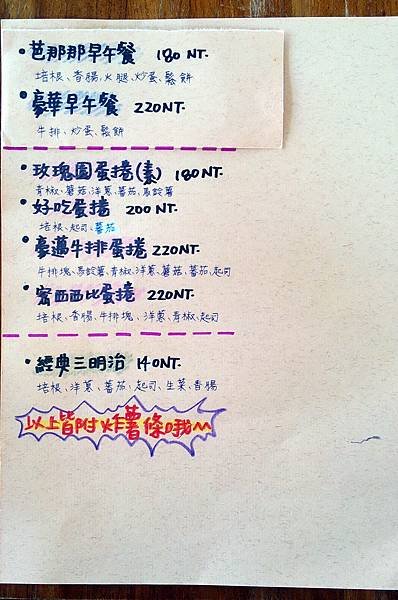 •芭那那早午餐 180 NT.
培根、香腸、火腿、炒蛋、鬆餅
•豪華早午餐 220NT.
牛排、炒蛋、鬆餅
•玫瑰園蛋捲(素) 180NT.
青椒、蘑菇、洋蔥、蕃茄、馬鈴薯
•好吃蛋捲 200 NT.
培根、起司、蕃茄
•豪邁牛排蛋捲 220NT.
牛排塊、馬鈴薯、青椒、洋蔥、蘑菇、蕃茄、起司
•密西西比蛋捲 220NT.
培根、香腸、牛排塊、洋蔥、青椒、起司
•經典三明治 140NT.
培根、洋蔥、蕃茄、起司、生菜、香腸
以上皆附炸薯條哦^^